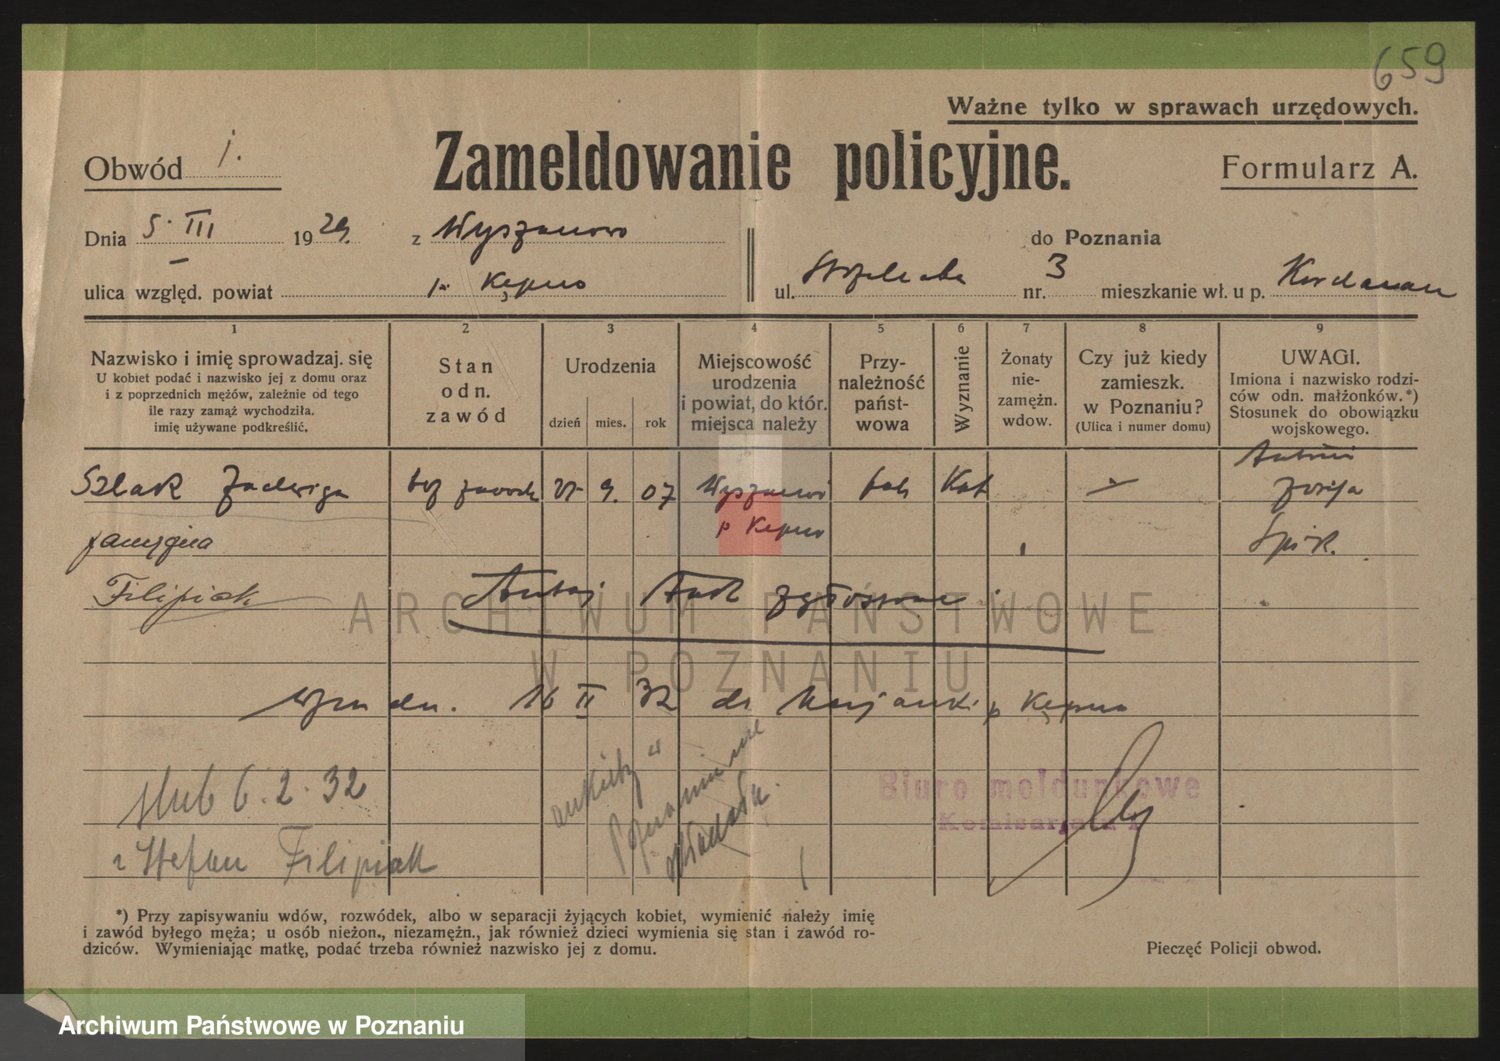 659
Ważne tylko w sprawach urzędowych.
Obwód I.
Zameldowanie policyjne.
Formularz A.
Dnia 5. III 1929. z Wyszanowo do Poznania
ulica względ. powiat p. Kępno ul. Strzelecka nr. 3 mieszkanie wł. u p.
1 2 3 4 5 6 7 8 9
Nazwisko i imię sprowadzaj. się
U kobiet podać i nazwisko jej z domu oraz
i z poprzednich mężów, zależnie od tego
ile razy zamąż wychodziła.
imię używane podkreślić.
Stan
odn.
zawód
Urodzenia
dzień mies. rok
Miejscowość
urodzenia
i powiat, do któr.
miejsca należy
Przy-
należność
państ-
wowa
Wyznanie
Żonaty
nie-
zamężn.
wdow.
Czy już kiedy
zamieszk.
w Poznaniu?
(Ulica i numer domu)
UWAGI.
Imiona i nazwisko rodzi-
ców odn. małżonków.*)
Stosunek do obowiązku
wojskowego.
Szlak Jadwiga bez zawodu 9. 07 Wyszanów Kat
p Kępno
zamężna
Filipiak
ARCHIWUM PAŃSTWOWE
W POZNANIU
dn. 16 II 32 do Marjanki p Kępno
ślub 6.2.32
z Stefan Filipiak
Biuro meldunkowe
Komisarjatu
*) Przy zapisywaniu wdów, rozwódek, albo w separacji żyjących kobiet, wymienić należy imię
i zawód byłego męża; u osób nieżon., niezamężn., jak również dzieci wymienia się stan i zawód ro-
dziców. Wymieniając matkę, podać trzeba również nazwisko jej z domu.
Pieczęć Policji obwod.
Archiwum Państwowe w Poznaniu